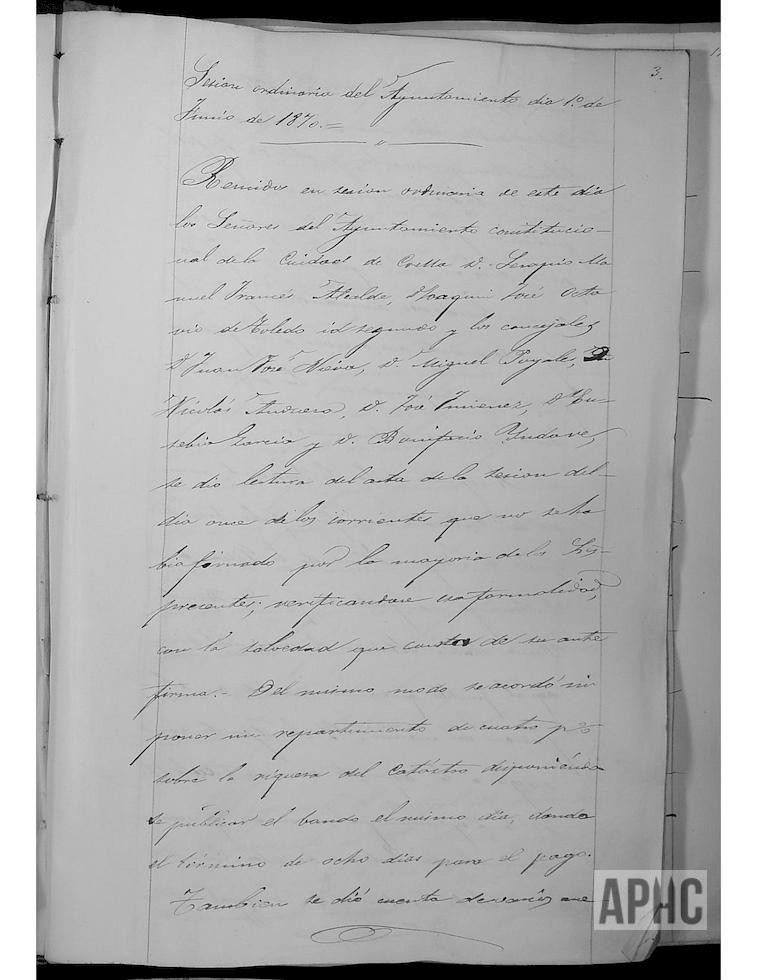 3.
Sesion ordinaria del Ayuntamiento dia 1º de
Junio de 1870.=
Reunidos en sesion ordinaria de este dia
los Señores del Ayuntamiento constitucio-
nal de la Ciudad de Corella D. Serapio Ma
nuel Francés Alcalde, D Joaquin José Octa
vio de Toledo id segundo y los concejales
D Juan José Nieva, D. Miguel Puyale, Dn
Nicolás Andueza, D. José Jimenez, D Eu-
sebio Garcia y D. Bonifacio Yndave,
se dio lectura del acta de la sesion del
dia once de los corrientes que no se ha
bia firmado por la mayoria de los Sres
presentes, verificandose esa formalidad,
con la salvedad que consta de su ante
firma.- Del mismo modo se acordó im
poner un repartimiento de cuatro p%
sobre la riqueza del Catástro disponiéndo
se publicar el bando el mismo dia, dando
el término de ocho dias para el pago.
Tambien se dió cuenta de varios me
APHC